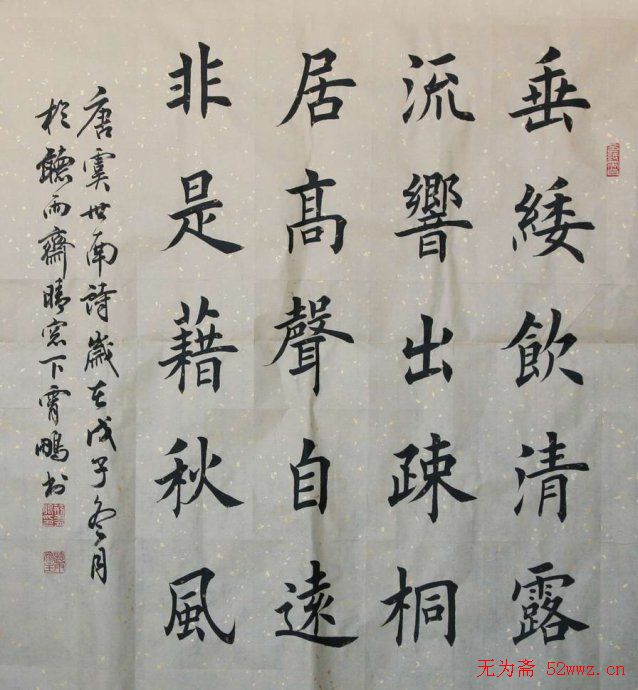 垂緌飲清露
流響出疎桐
居高聲自遠
非是藉秋風
唐虞世南詩歲在戊子冬月
於聽雨齋晴窓下霄鵬书
无为斋 52wwz.cn